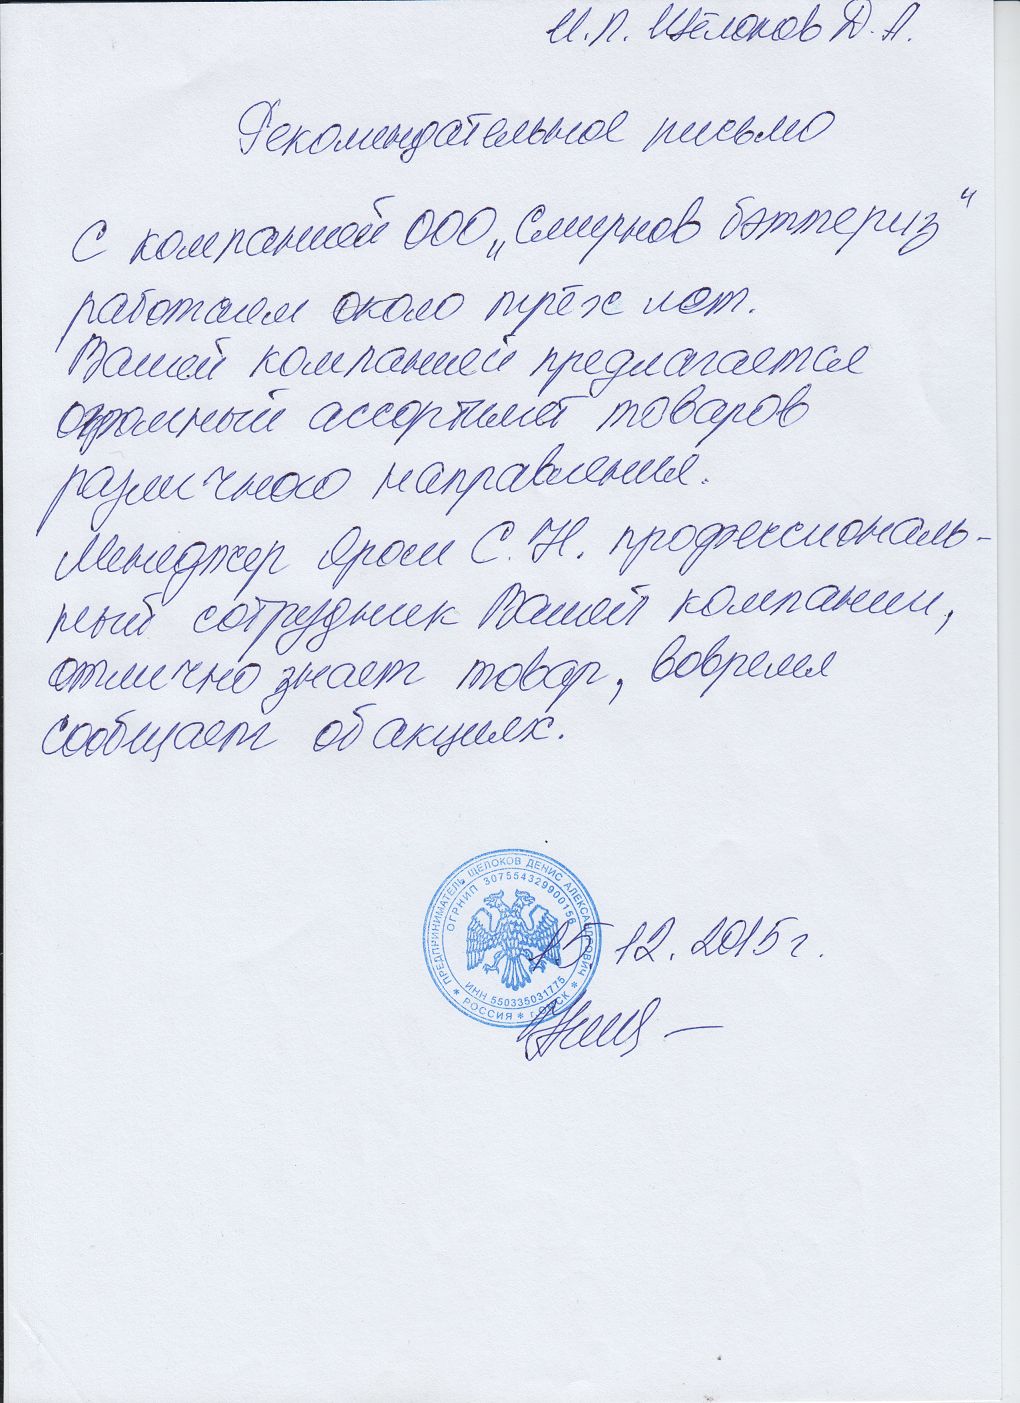 И.П. Щёлоков Д.А.
Рекомендательное письмо
С компанией ООО „Смирнов бэттериз“
работаем около трёх лет.
Вашей компанией предлагается
огромный ассортимент товаров
различного направления.
Менеджер С.Н. профессиональ-
ный сотрудник Вашей компании,
отлично знает товар, вовремя
сообщает об акциях.
ПРЕДПРИНИМАТЕЛЬ ЩЕЛОКОВ ДЕНИС АЛЕКСАНДРОВИЧ
ОГРНИП 307554329900156
ИНН 550335031775
* РОССИЯ * г.ОМСК *
15.12.2015г.